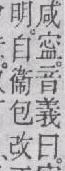 咸寍。音義曰。
明。自衞包改